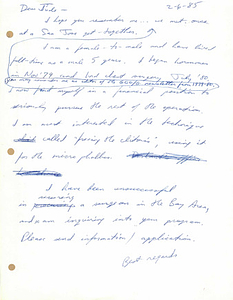 Dear Jude – 2-6-85
I hope you remember me... we met once
at a San Jose get-together.
I am a female-to-male and have lived
full-time as a male 5 years. I began hormones
in Nov. '79, and had chest surgery July '80.
I now find myself in a financial position to
seriously pursue the rest of the operation.
I am most interested in the technique
called "freeing the clitoris", using it
for the micro phallus.
I have been unsuccessful
in securing a surgeon in the Bay Area,
and am inquiring into your program.
Please send information/application.
Best regards